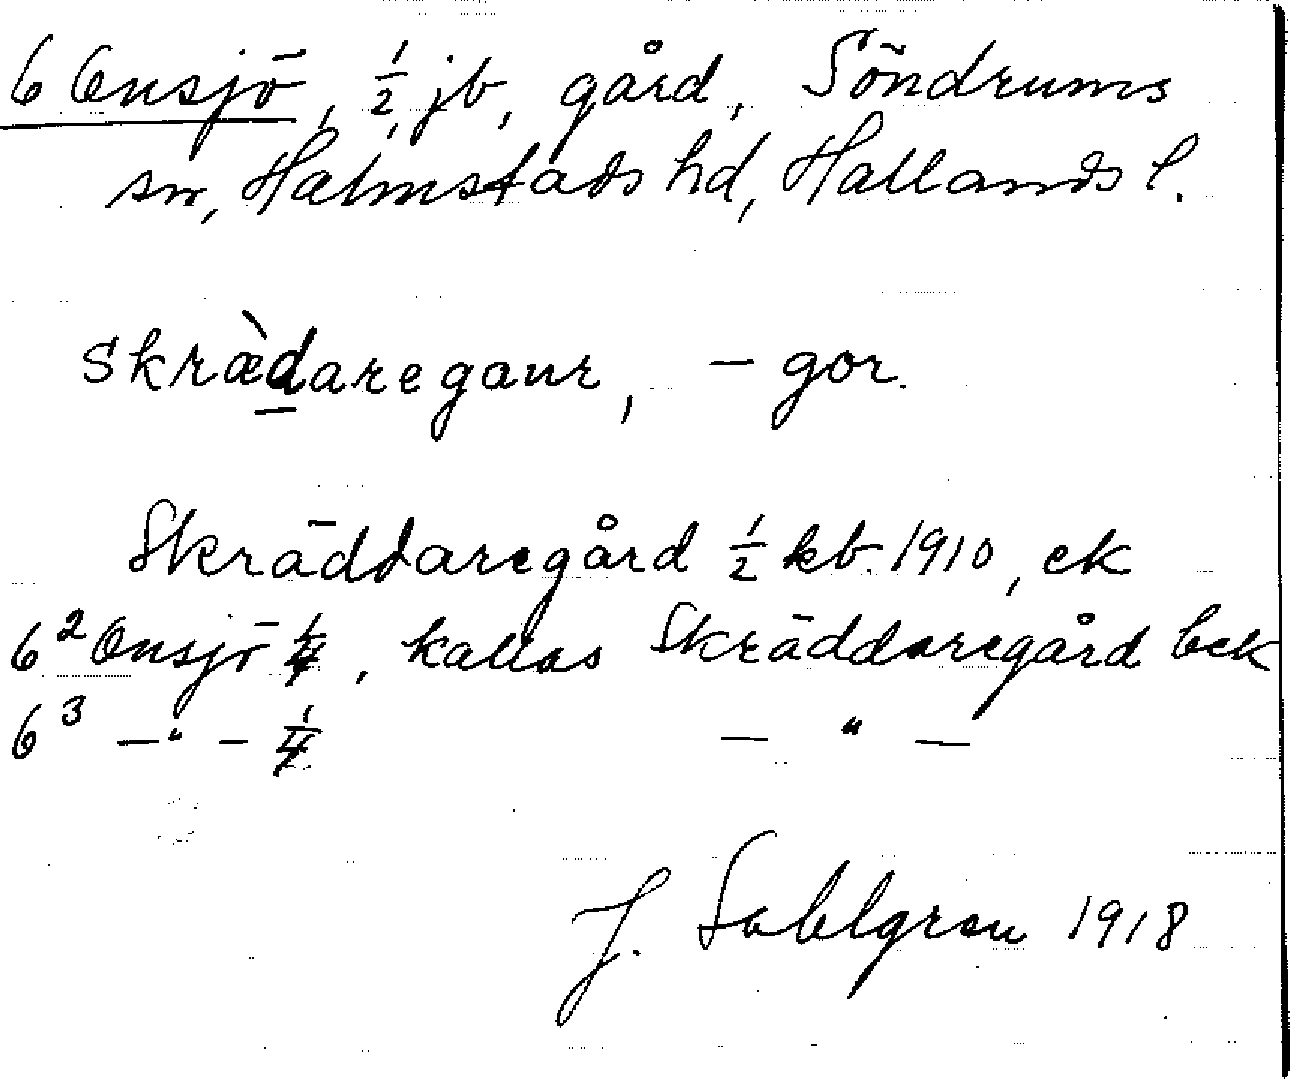 6 Onsjö, ½ jb, gård, Söndrums
sn, Halmstads hd, Hallands l.
skræ̀daregaur, – gor.
Skräddaregård ½ kb. 1910, ek
6² Onsjö ¼, kallas Skräddaregård bek
6³ –"– ¼ – " –
J. Sahlgren 1918